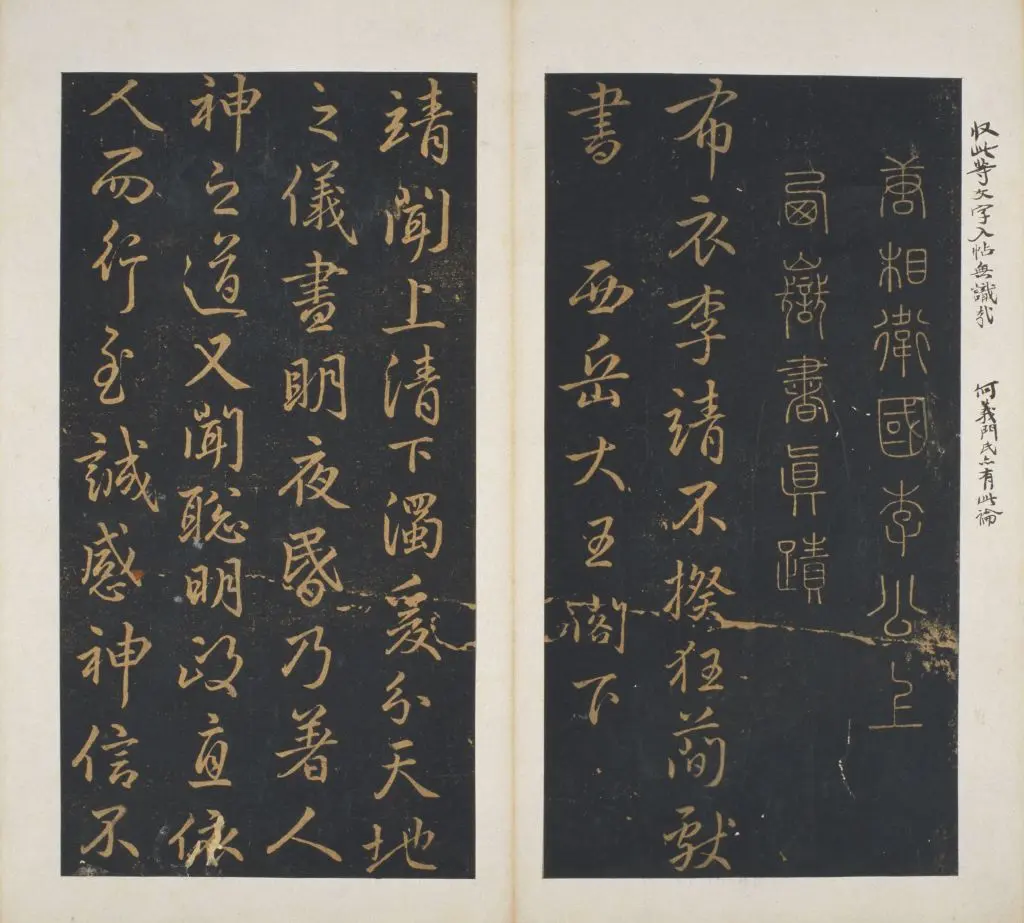 收此等文字入帖無識哉
何義門氏亦有此論
唐相衛國李公上
西嶽書真蹟
布衣李靖不揆狂蕳獻
書
西岳大王閣下
靖聞上清下濁爰分天地
之儀晝明夜昏乃著人
神之道又聞聰明政直依
人而行至誠感神信不